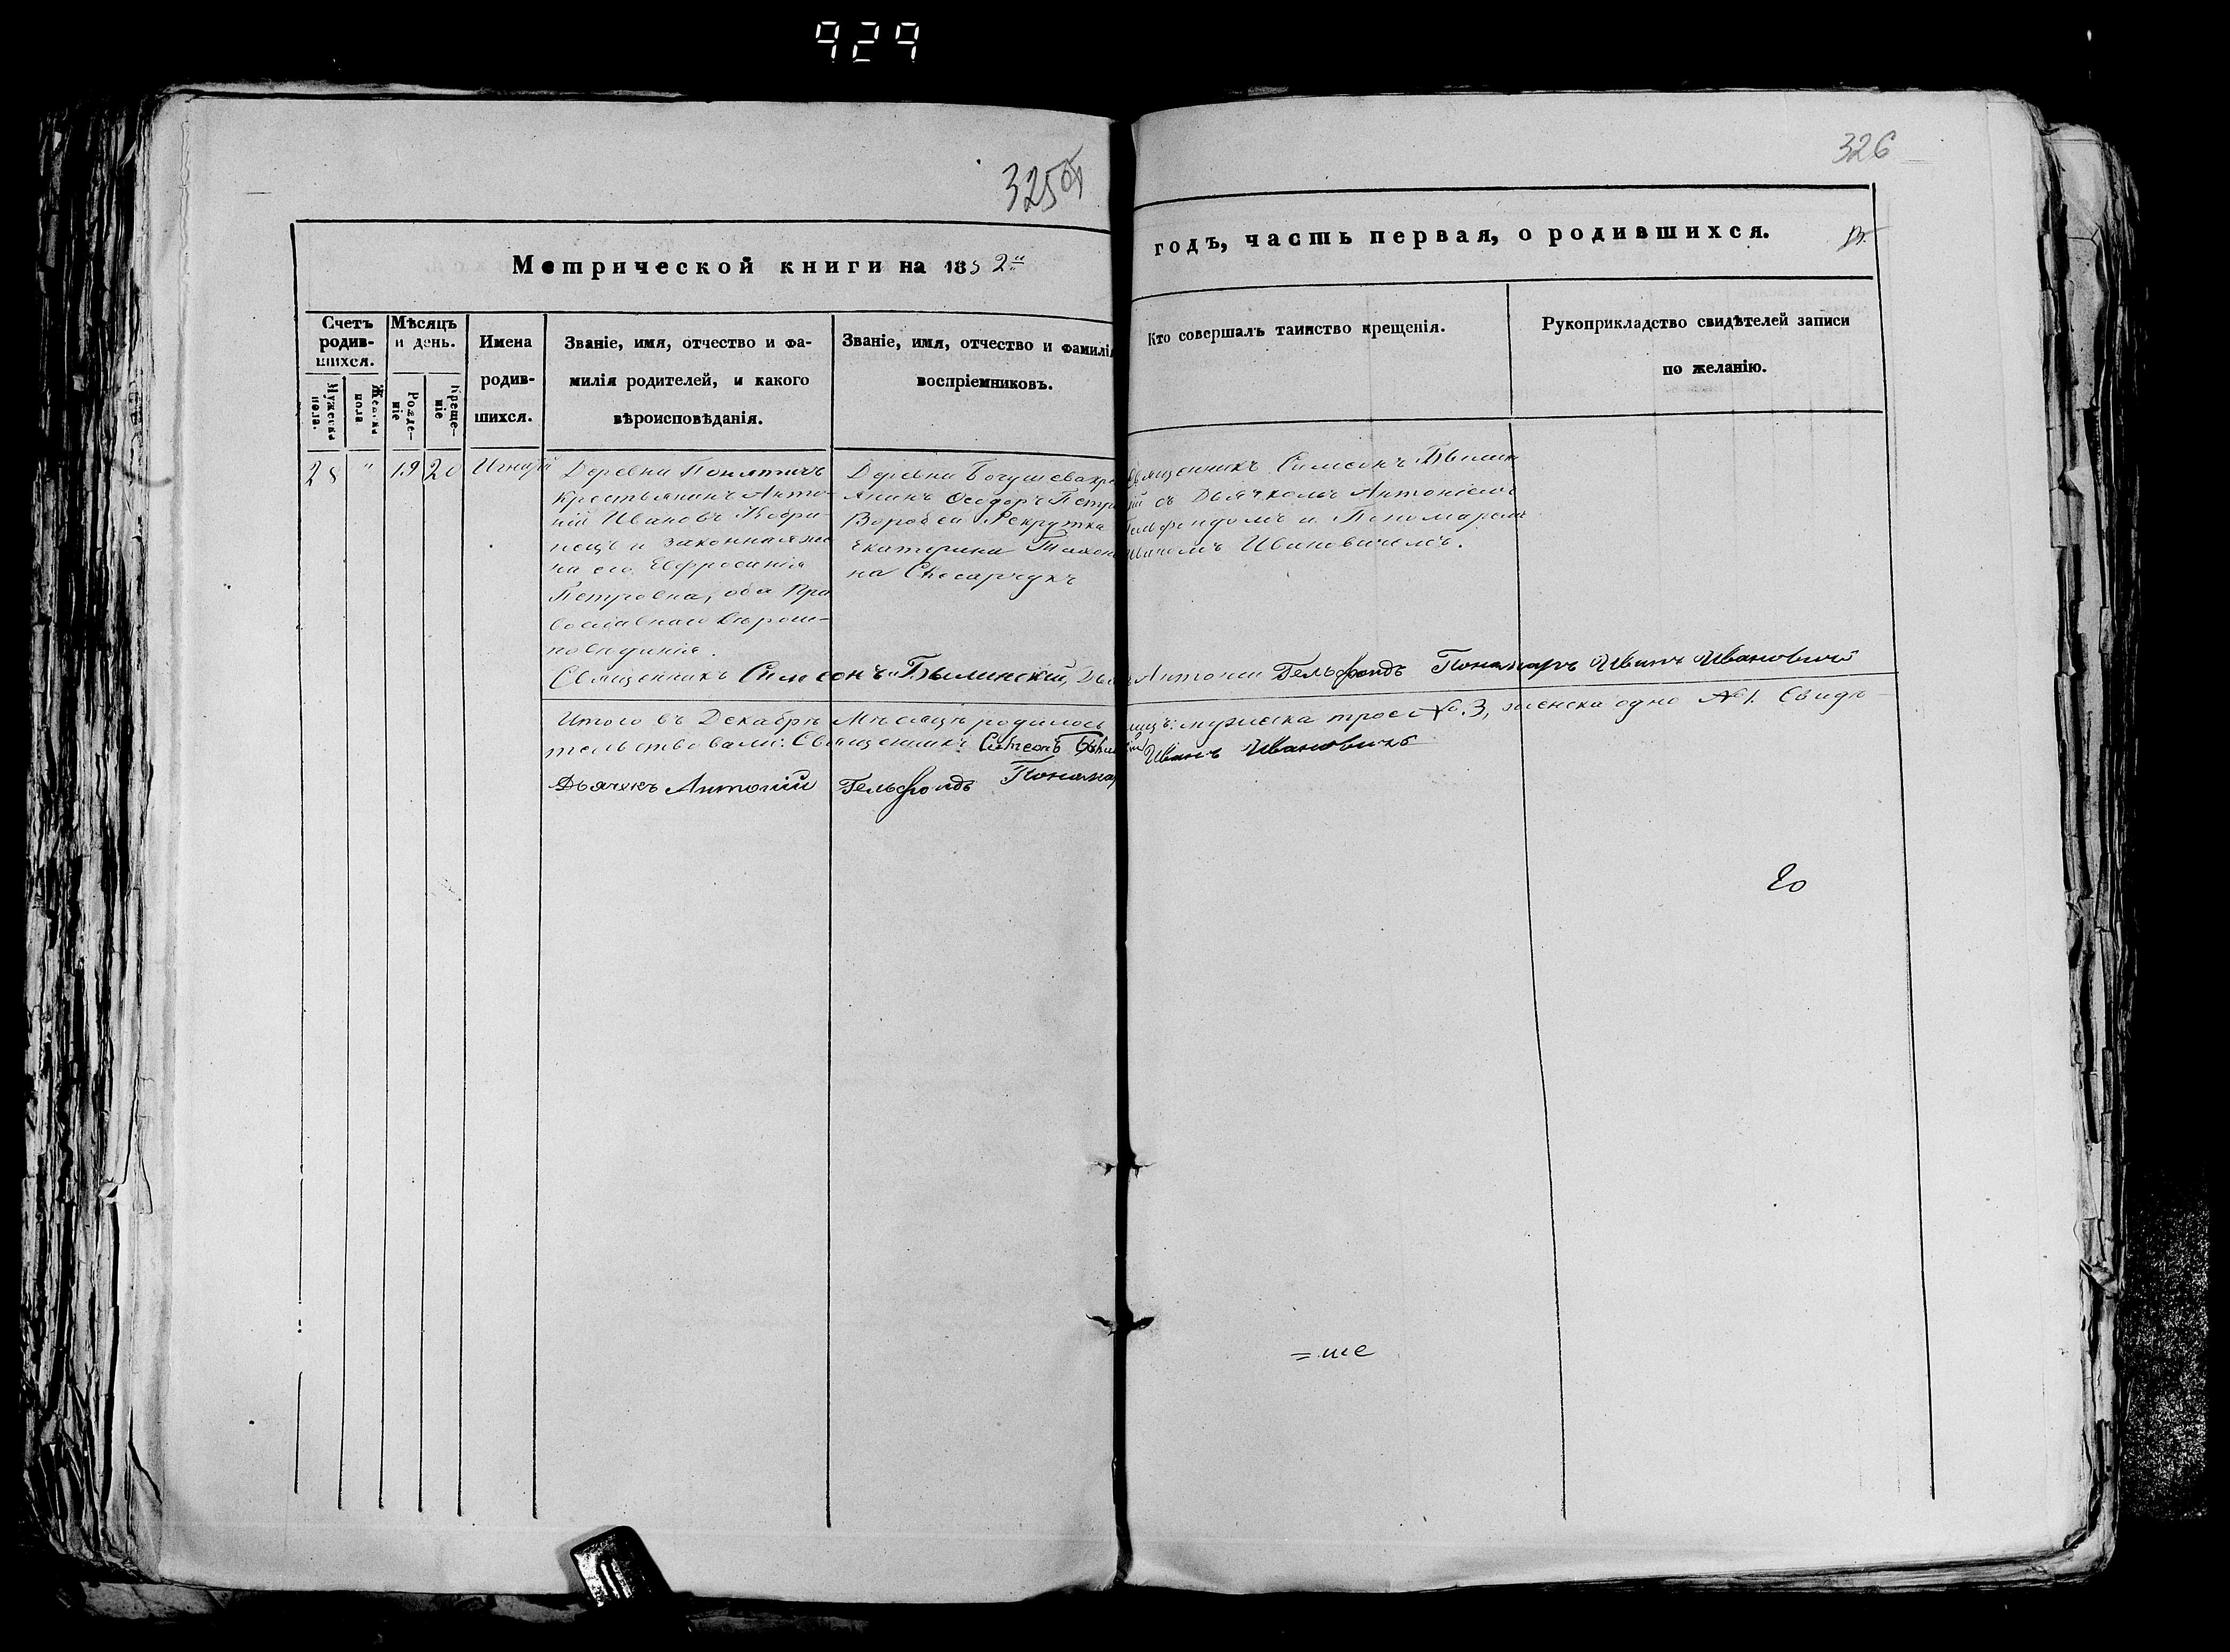 929
325об
326
Метрической книги на 1852й
годъ, часть первая, о родившихся.
Счетъ родив-шихся.
Мужеска пола.
Женска пола
Мѣсяцъ и день.
Рожде-ніе
Креще-ніе
Имена родив-шихся.
Званіе, имя, отчество и фа-
милія родителей, и какого
вѣроисповѣданія.
Званіе, имя, отчество и фамилія
воспріемниковъ.
Кто совершалъ таинство крещенія.
Рукоприкладство свидѣтелей записи
по желанію.
28 " 19 20 Игнатій
Деревни
Крестьянинъ Анто-
ній Ивановъ
и законная же
на его Евфросинія
Петровна, оба Пра
вославнаго вѣроис-
повѣданія.
Деревни Богушевка кре
янинъ Ѳеодоръ Петр
Воробей Рекрутка
Екатерина
на Слесарчукъ
Священникъ Симеонъ Былин
ій съ Дьячкомъ Антоніемъ
Гельфондомъ и Пономаремъ
Иваномъ Ивановичемъ.
Священникъ Симеонъ Былинскій, Дья Антоній Гельфондъ Пономарь Иванъ Ивановичъ
Итого въ Декабрѣ Мѣсяцѣ родилось мужеска трое № 3, женска одно № 1. Свидѣ-
тельствовали: Священникъ Симеонъ Былинскій
Дьячекъ Антоній Гельфондъ Пономарь Иванъ Ивановичъ
20
=ше